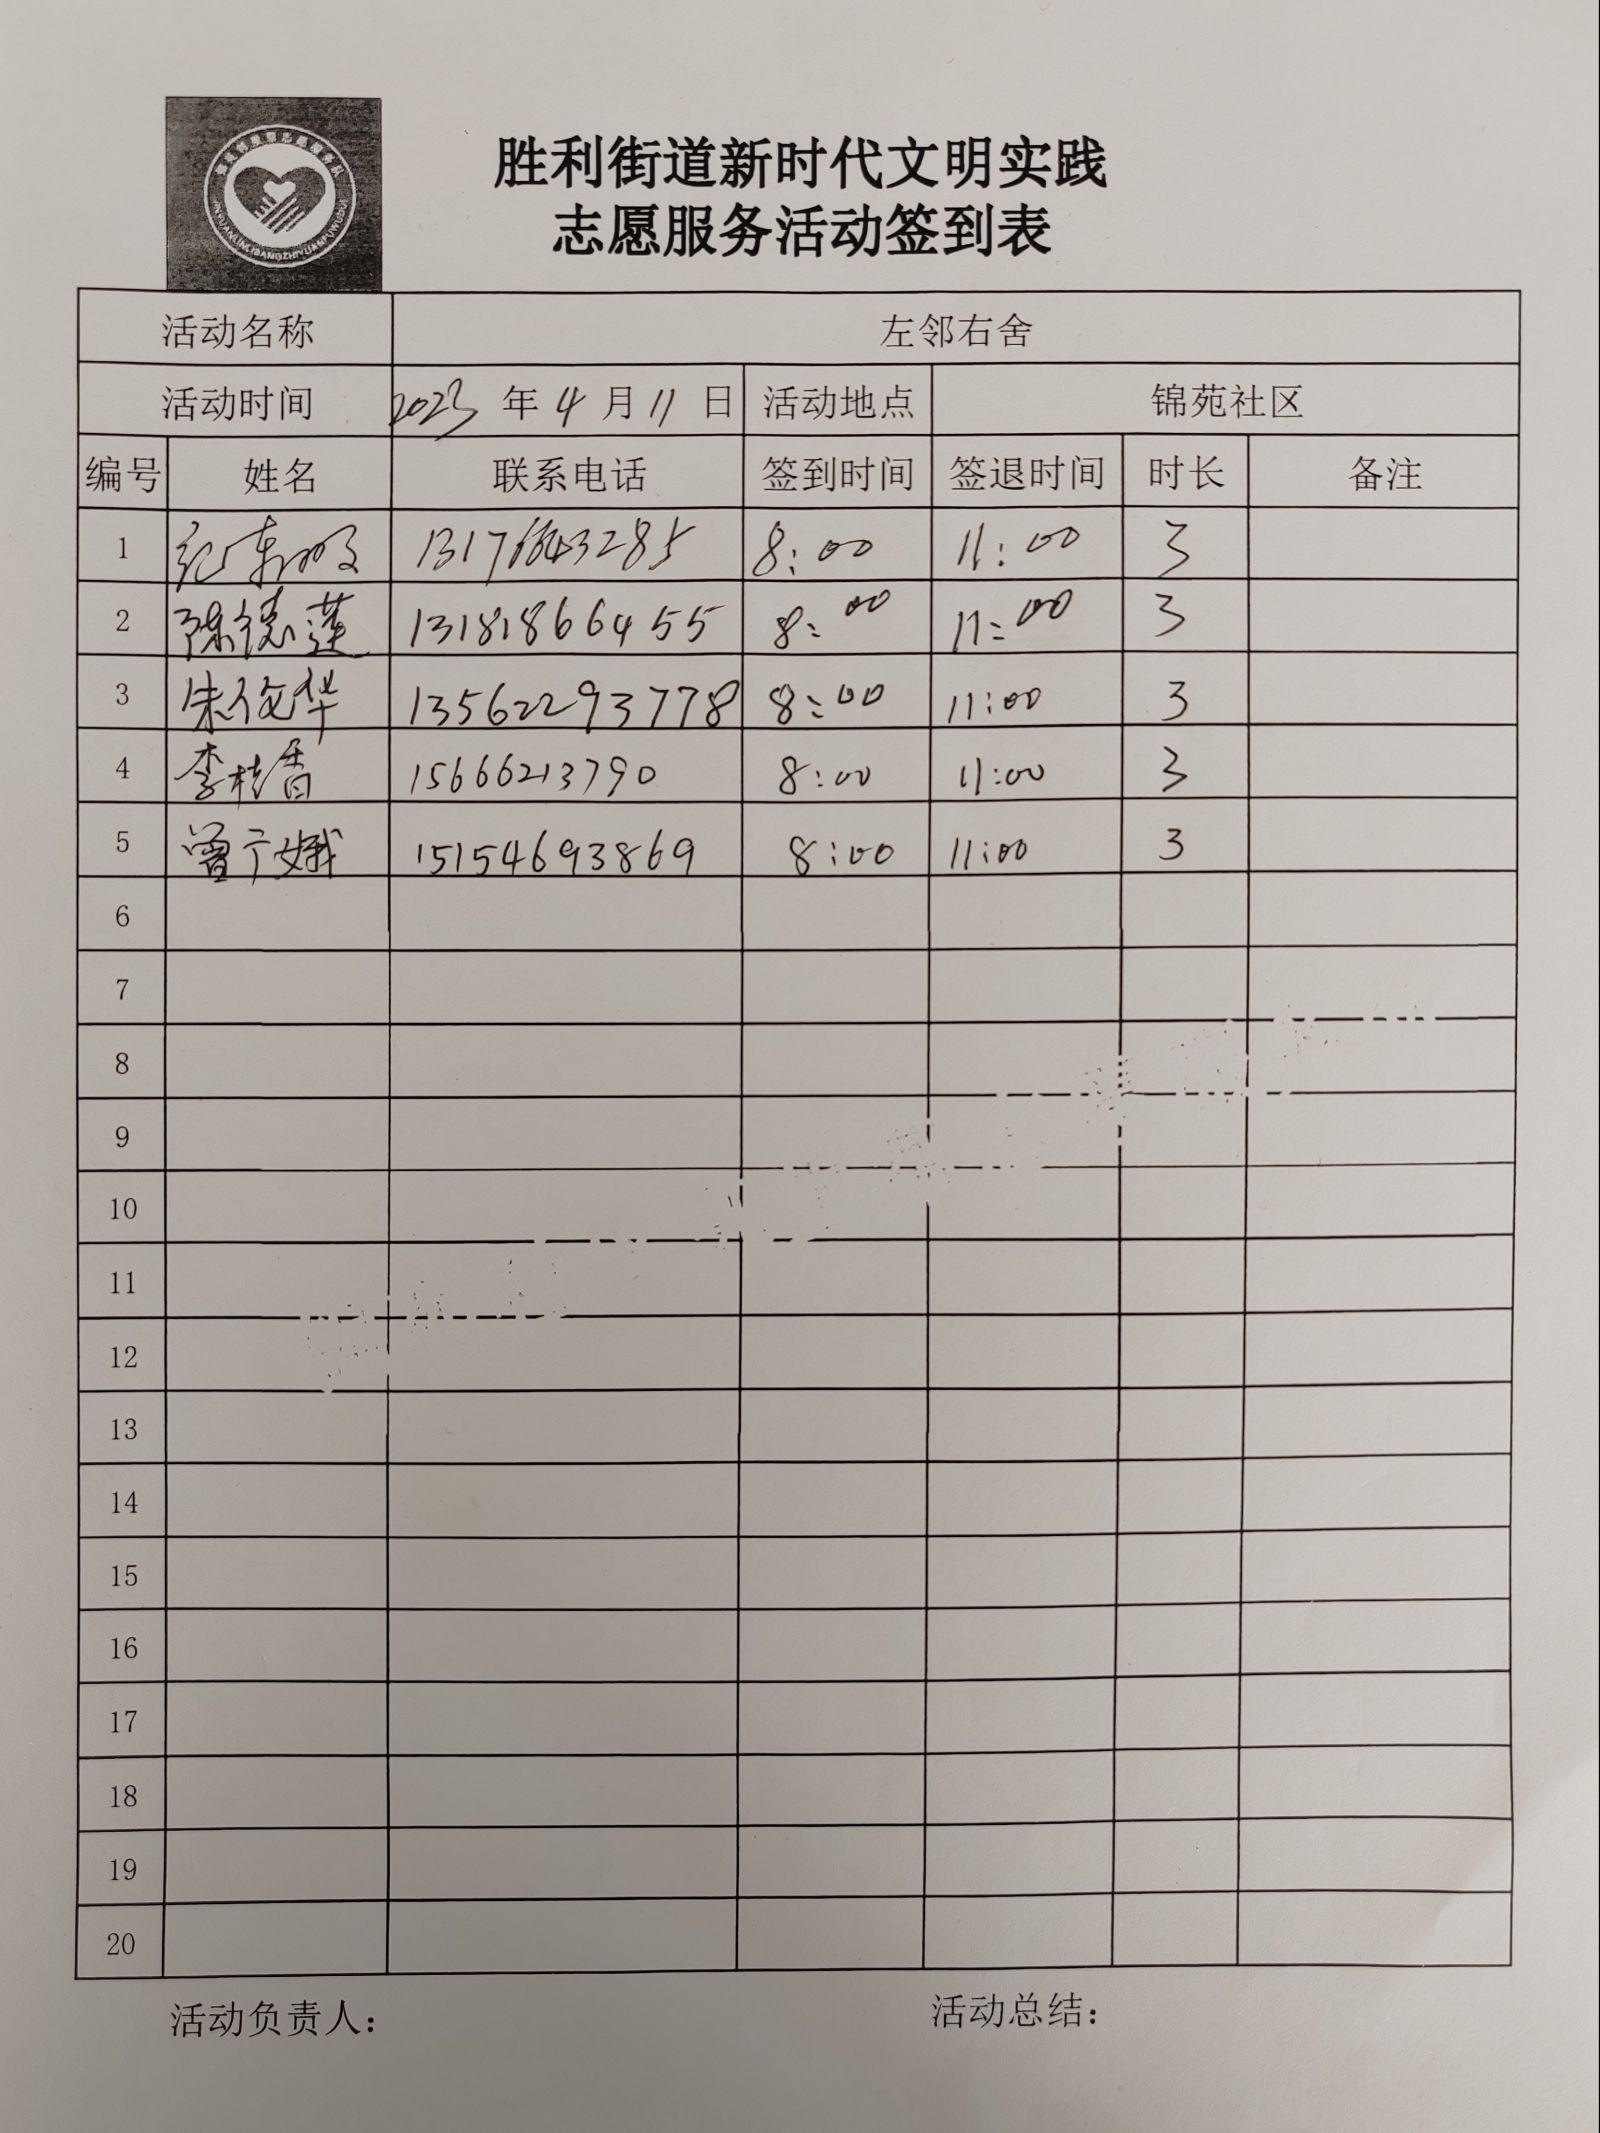 胜利街道新时代文明实践
志愿服务活动签到表
活动名称 左邻右舍
活动时间 2023 年 4 月 11 日 活动地点 锦苑社区
编号 姓名 联系电话 签到时间 签退时间 时长 备注
1 纪东明 8:00 11:00 3
2 陈德莲 13181866455 8:00 11:00 3
3 朱俊华 13562293778 8:00 11:00 3
4 李桂香 15666213790 8:00 11:00 3
5 曾广娥 15154693869 8:00 11:00 3
6
7
8
9
10
11
12
13
14
15
16
17
18
19
20
活动负责人: 活动总结: